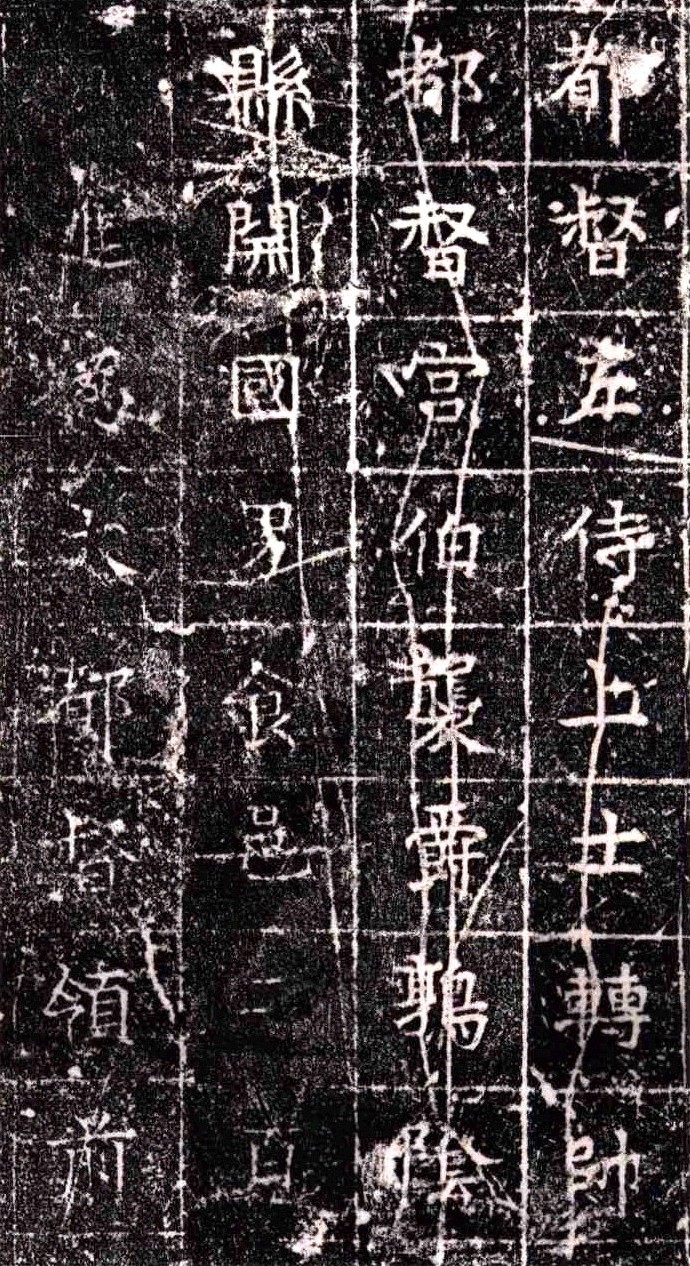 都督左侍上士轉帥
都督宫伯襲爵鶉陰
縣開國男食邑二百
進爲大都督領前